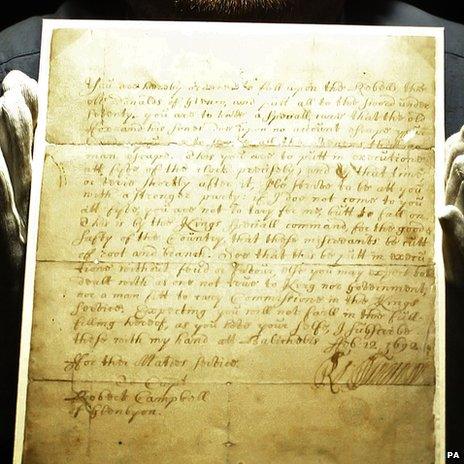 You are hereby ordered to fall upon the Rebells the
McDonalds of Glenco and putt all to the sword under
seventy. you are to have a speciall care that the old
Fox and his sones doe upon no account escape your
man escape. This you are to putt in execution
att fyve of the clock precisely and by that time
or very shortly after it, I'll strive to be att you
with a stronger party. if I doe not come to you
att fyve, you are not to tary for me, butt to fall on
This is by the Kings speciall command, for the good &
safty of the Country, that these miscreants be cutt
off root and branch. See that this be putt in execu
tione without feud or favour, else you may expect to be
dealt with as one not true to King nor Government,
nor a man fitt to cary Commissione in the Kings
service. Expecting you will not faill in the full-
filling hereof, as you love your selfe, I subscribe
these with my hand att Balicholis Feb: 12, 1692
For their Maties service
To Capt
Robert Campbell
of Glenlyon.
PA